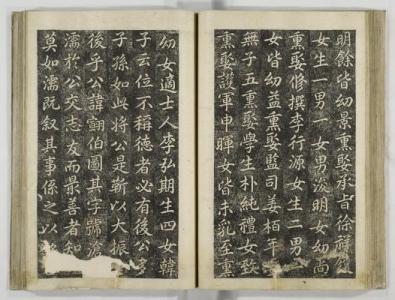 明餘皆幼景熏娶承旨徐
女生一男一女男浚明女幼尚
熏娶修撰李行源女生二男
女皆幼益熏娶監司姜栢年
無子五熏娶學生朴純禮女致
熏娶護軍申暉女皆未乳至熏
幼女適士人李弘期生四女韓
子云位不稱德者必有後公
子孫如此將公是蘄以大振
後乎公諱翩伯圖其字號滄
濡於公交志友而最善者知
莫如濡旣叙其事係之以